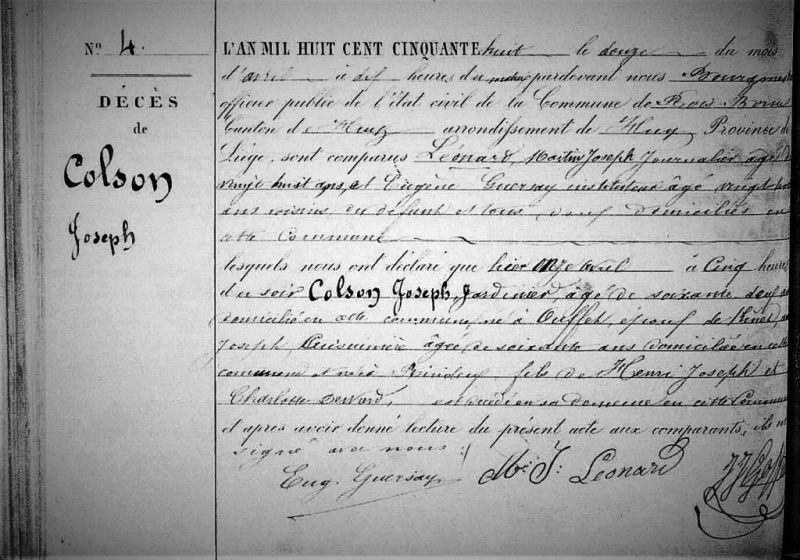 Nº 4.
DÉCÈS
de
Colson
Joseph
L'AN MIL HUIT CENT CINQUANTE huit le douze du mois
d'avril à dix heures du matin pardevant nous Bourgmestre
officier public de l'état civil de la Commune de
Canton de Huy arrondissement de Huy Province de
Liége, sont comparus Léonard, Martin Joseph Journalier âgé de
vingt huit ans, et Eugène Guersay instituteur âgé vingt
ans voisins du défunt et tous deux domiciliés en
cette Commune
lesquels nous ont déclaré que hier onze avril à Cinq heures
du soir Colson Joseph, Jardinier, âgé de soixante
domicilié en cette commune, né à Ouffet, époux de
Joseph, Cuisinière âgée de soixante ans domiciliée en cette
commune et née fils de Henri Joseph et
Charlotte est décédé en sa demeure en cette Commune
et après avoir donné lecture du présent acte aux comparants, ils ont
signé avec nous :
Eug. Guersay
M. J. Léonard